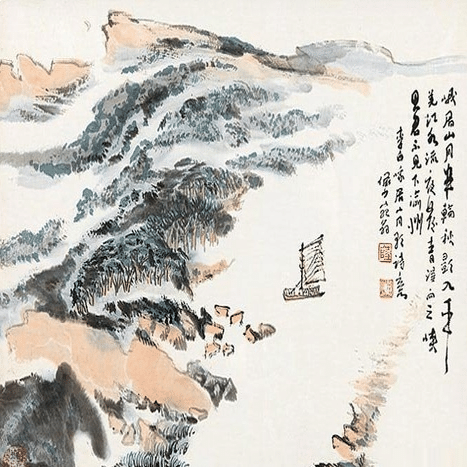 峨眉山月半輪秋影入平
羌江水流夜發清溪向三峽
思君不見下渝州
李白峨眉山月歌詩意
儼少